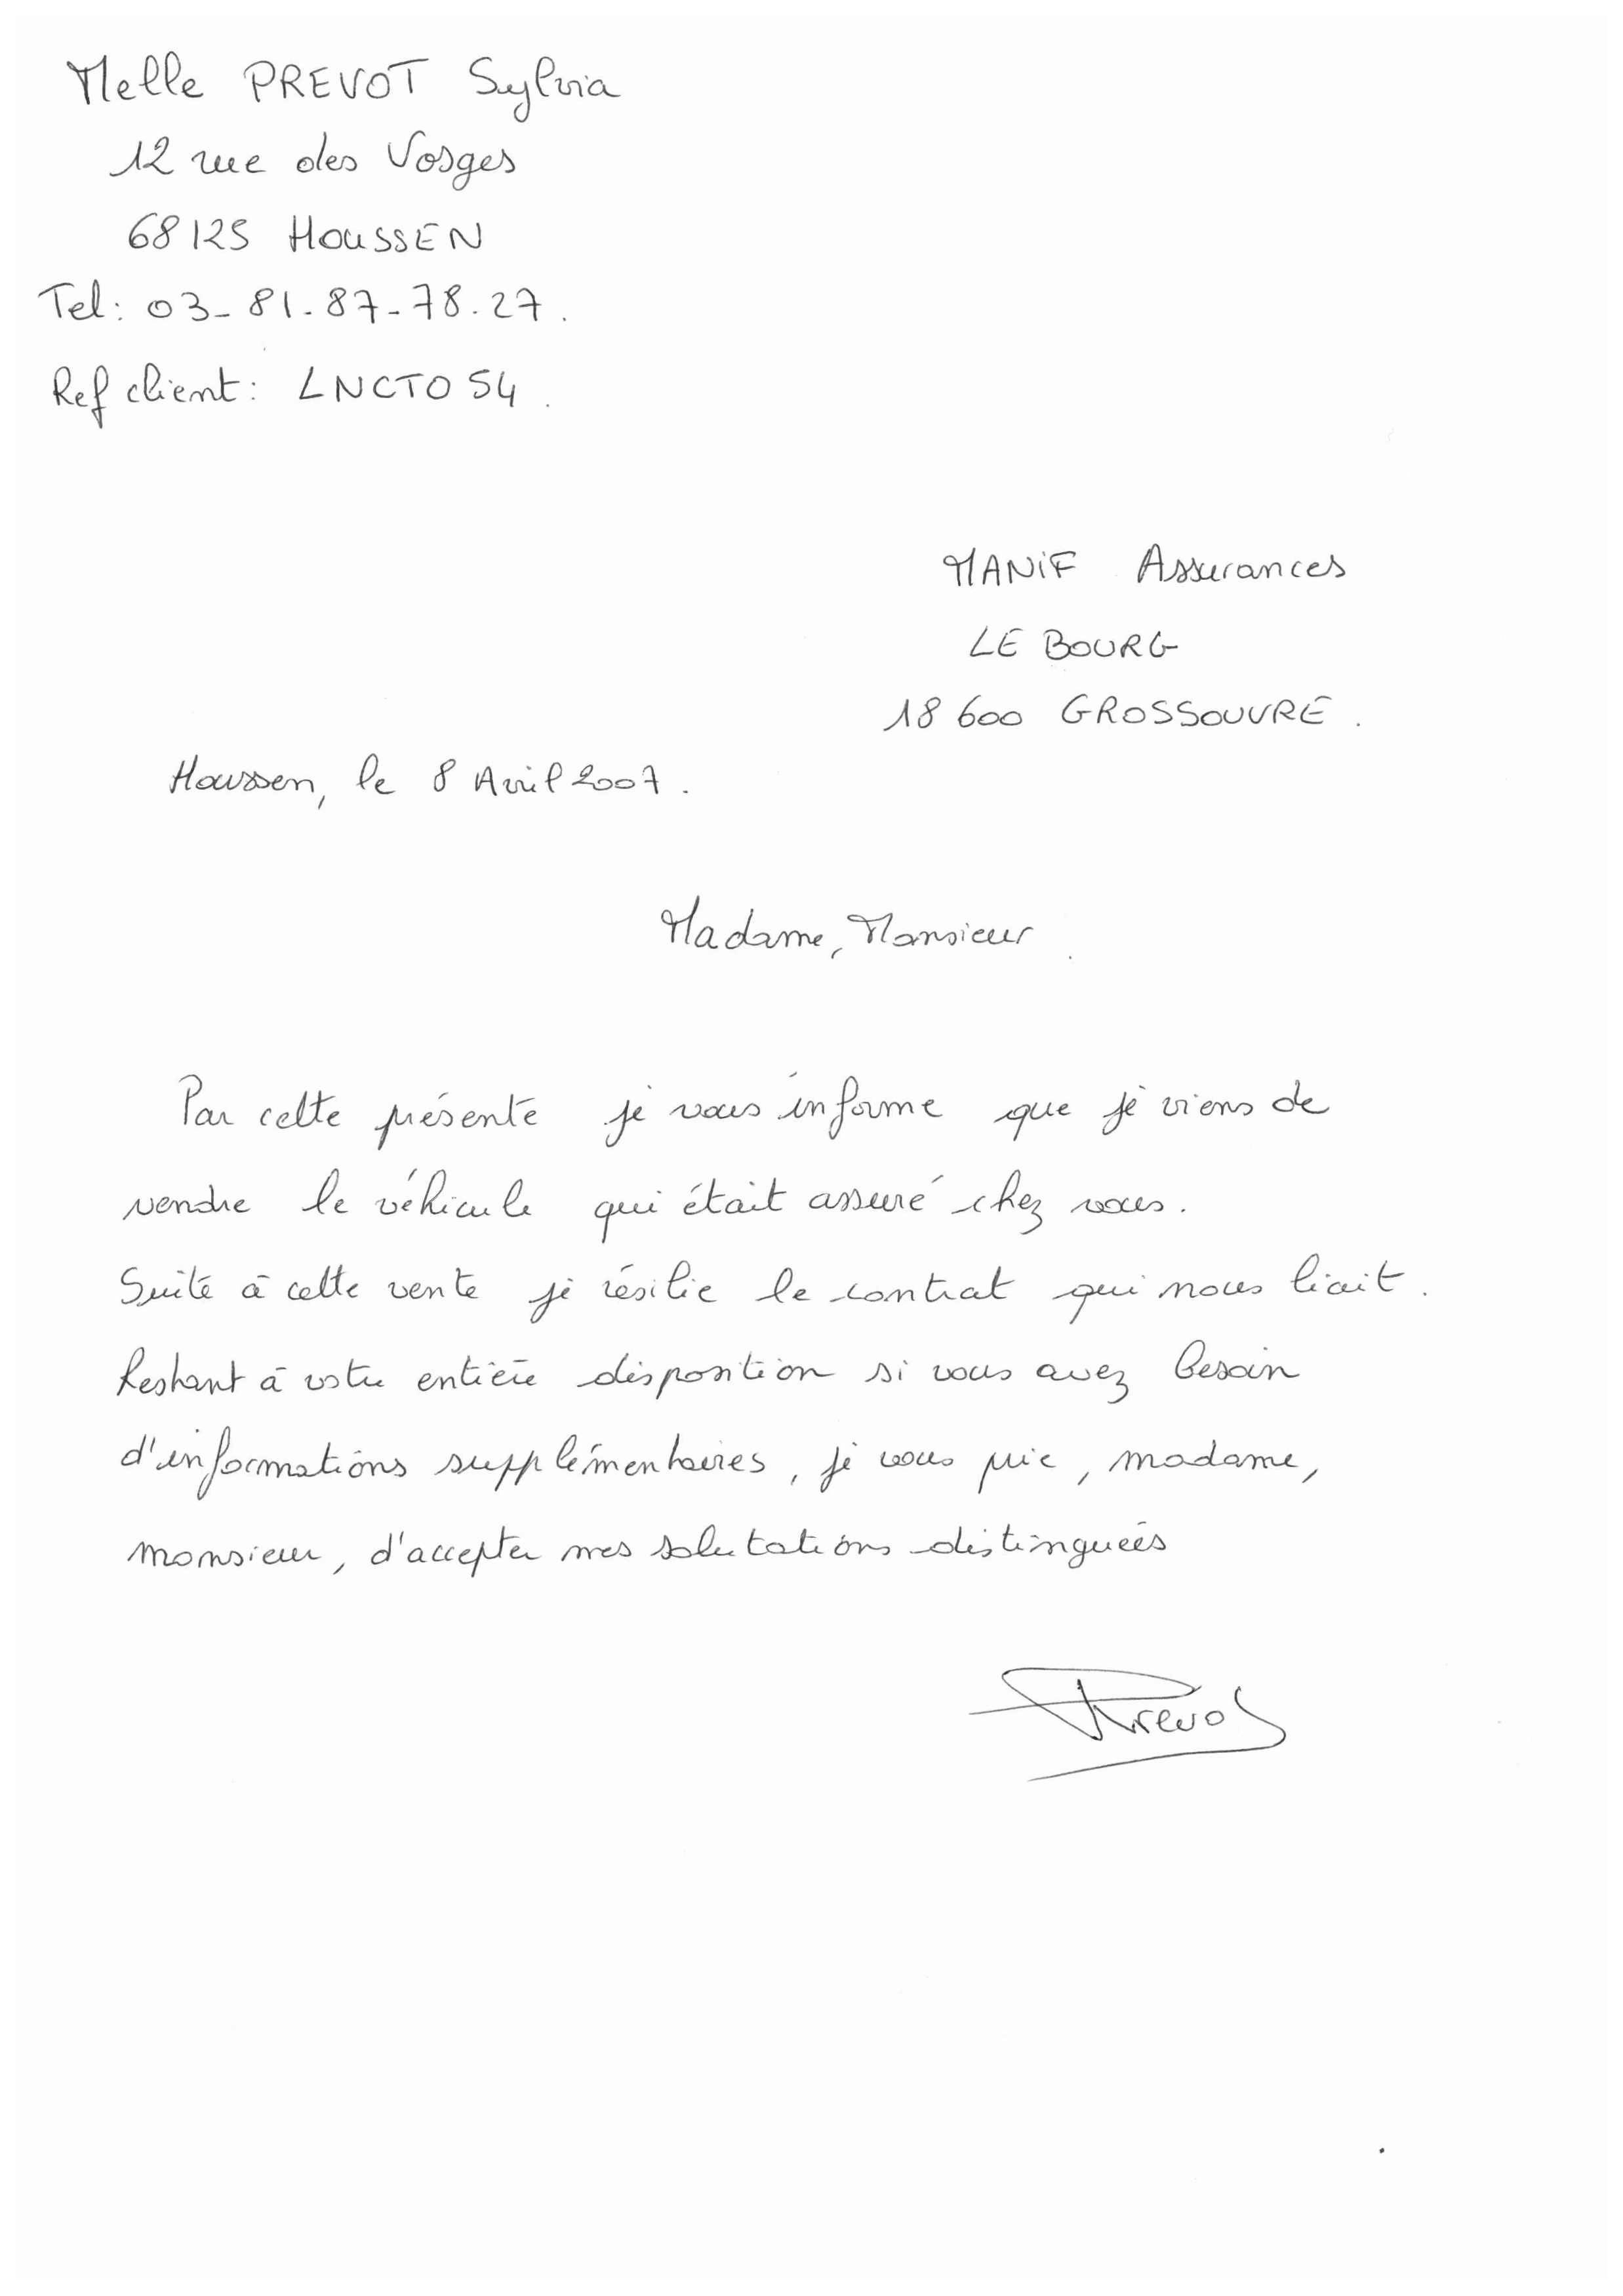 Melle PREVOT Sylvia
12 rue des Vosges
68125 HOUSSEN
Tel: 03-81.87-78.27.
Ref client: LNCTO54.
MANIF Assurances
LE BOURG
18600 GROSSOUVRE.
Houssen, le 8 Avril 2007.
Madame, Monsieur.
Par cette présente je vous informe que je viens de
vendre le véhicule qui était assuré chez vous.
Suite à cette vente je résilie le contrat qui nous liait.
Restant à votre entière disposition si vous avez besoin
d'informations supplémentaires, je vous prie, madame,
monsieur, d'accepter mes salutations distinguées
Prevot